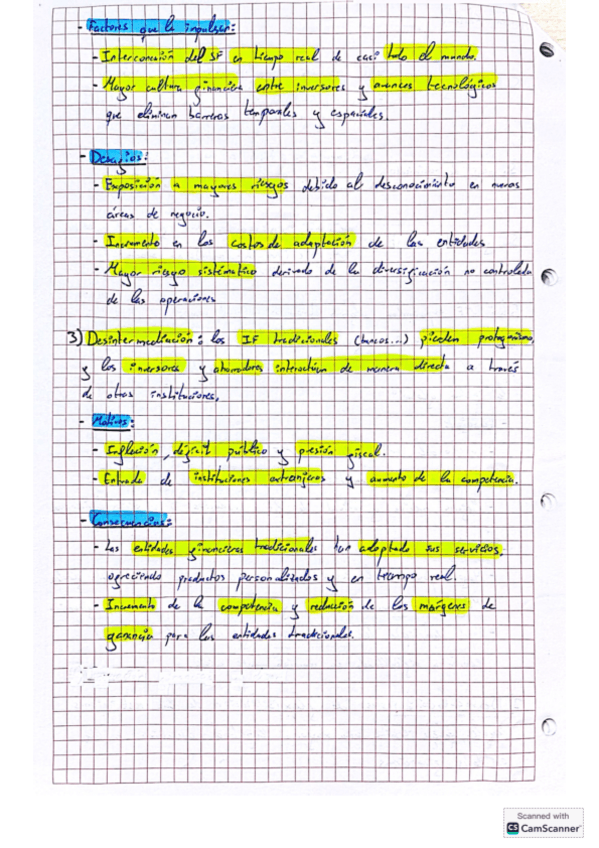 - Factores que la impulsan:
- Interconexión del SF en tiempo real de casi todo el mundo.
- Mayor cultura financiera entre inversores y avances tecnológicos
que eliminan barreras temporales y espaciales.
- Desafíos:
- Exposición a mayores riesgos debido al desconocimiento en nuevas
áreas de negocio.
- Incremento en los costos de adaptación de las entidades
- Mayor riesgo sistemático derivado de la diversificación no controlada
de las operaciones
3) Desintermediación: los IF tradicionales (bancos...) pierden protagonismo,
y los inversores y ahorradores interactúan de manera directa a través
de otras instituciones.
- Motivos:
- Inflación, déficit público y presión fiscal.
- Entrada de instituciones extranjeras y aumento de la competencia.
- Consecuencias:
- Las entidades financieras tradicionales han adaptado sus servicios,
ofreciendo productos personalizados y en tiempo real.
- Incremento de la competencia y reducción de los márgenes de
ganancia para las entidades tradicionales.
Scanned with
CS CamScanner